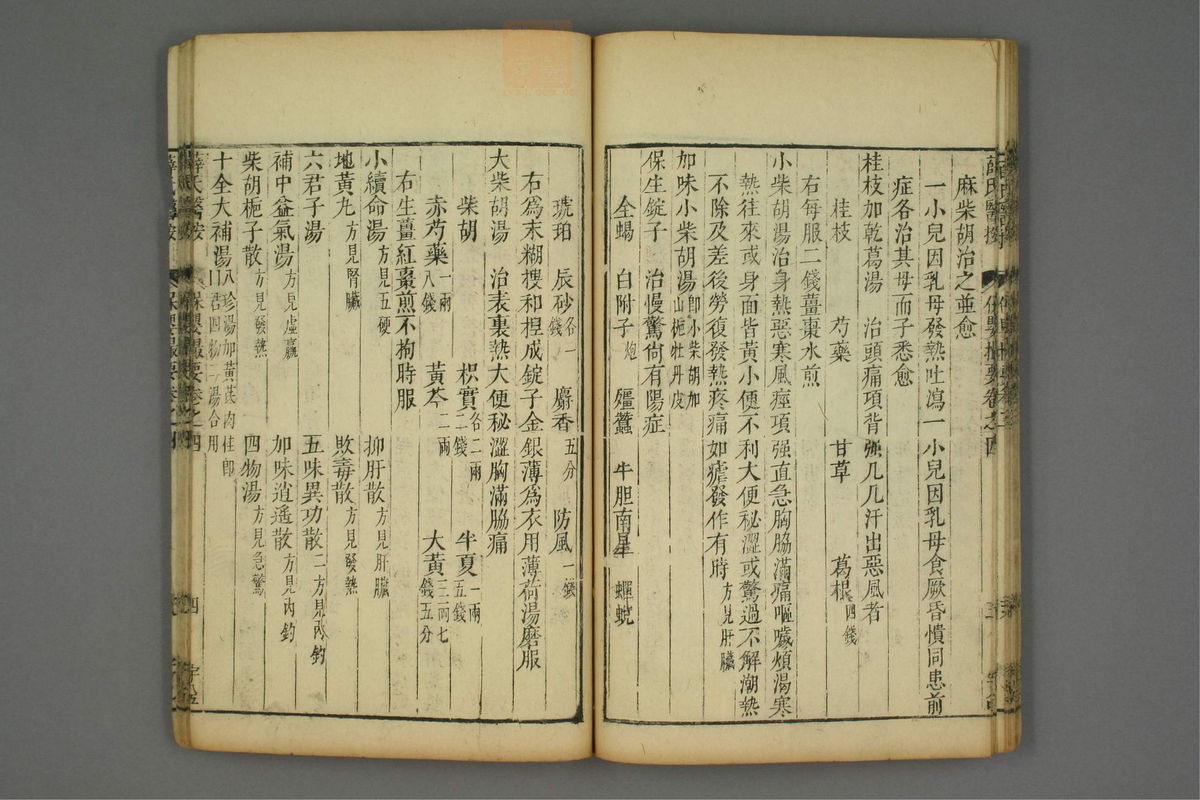 麻柴胡治之並愈
一小兒因乳母發熱吐瀉一小兒因乳母食厥昏憒同患前
症各治其母而子悉愈
桂枝加乾葛湯 治頭痛項背強几几汗出惡風者
桂枝 芍藥 甘草 葛根四錢
右每服二錢薑棗水煎
小柴胡湯治身熱惡寒風痙項強直急胸脇滿痛嘔噦煩渴寒
熱往來或身面皆黃小便不利大便秘澀或驚過不解潮熱
不除及差後勞復發熱疼痛如瘧發作有時方見肝臟
加味小柴胡湯即小柴胡加山梔牡丹皮
保生錠子 治慢驚尚有陽症
全蝎 白附子炮 殭蠶 牛胆南星 蟬蛻
琥珀 辰砂各一錢 麝香五分 防風一錢
右為末糊搜和桯成錠子金銀薄為衣用薄荷湯磨服
大柴胡湯 治表裏熱大便秘澀胸滿脇痛
柴胡 枳實各二兩二錢 半夏一兩五錢
赤芍藥一兩八錢 黃芩二兩 大黃三兩七錢五分
右生薑紅棗煎不拘時服
小續命湯方見五硬 抑肝散方見肝臟
地黃丸方見腎臟 敗毒散方見發熱
六君子湯 五味異功散二方見內釣
補中益氣湯方見虛羸 加味逍遙散方見內釣
柴胡梔子散方見發熱 四物湯方見急驚
十全大補湯八珍湯加黃芪肉桂即四君四物二湯合用
薛氏醫按 保嬰撮要卷之四